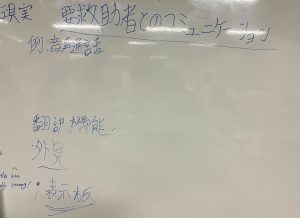 現実 要救助者とのコミュニケーション
例.音声通話
翻訳機能
外見
表示板